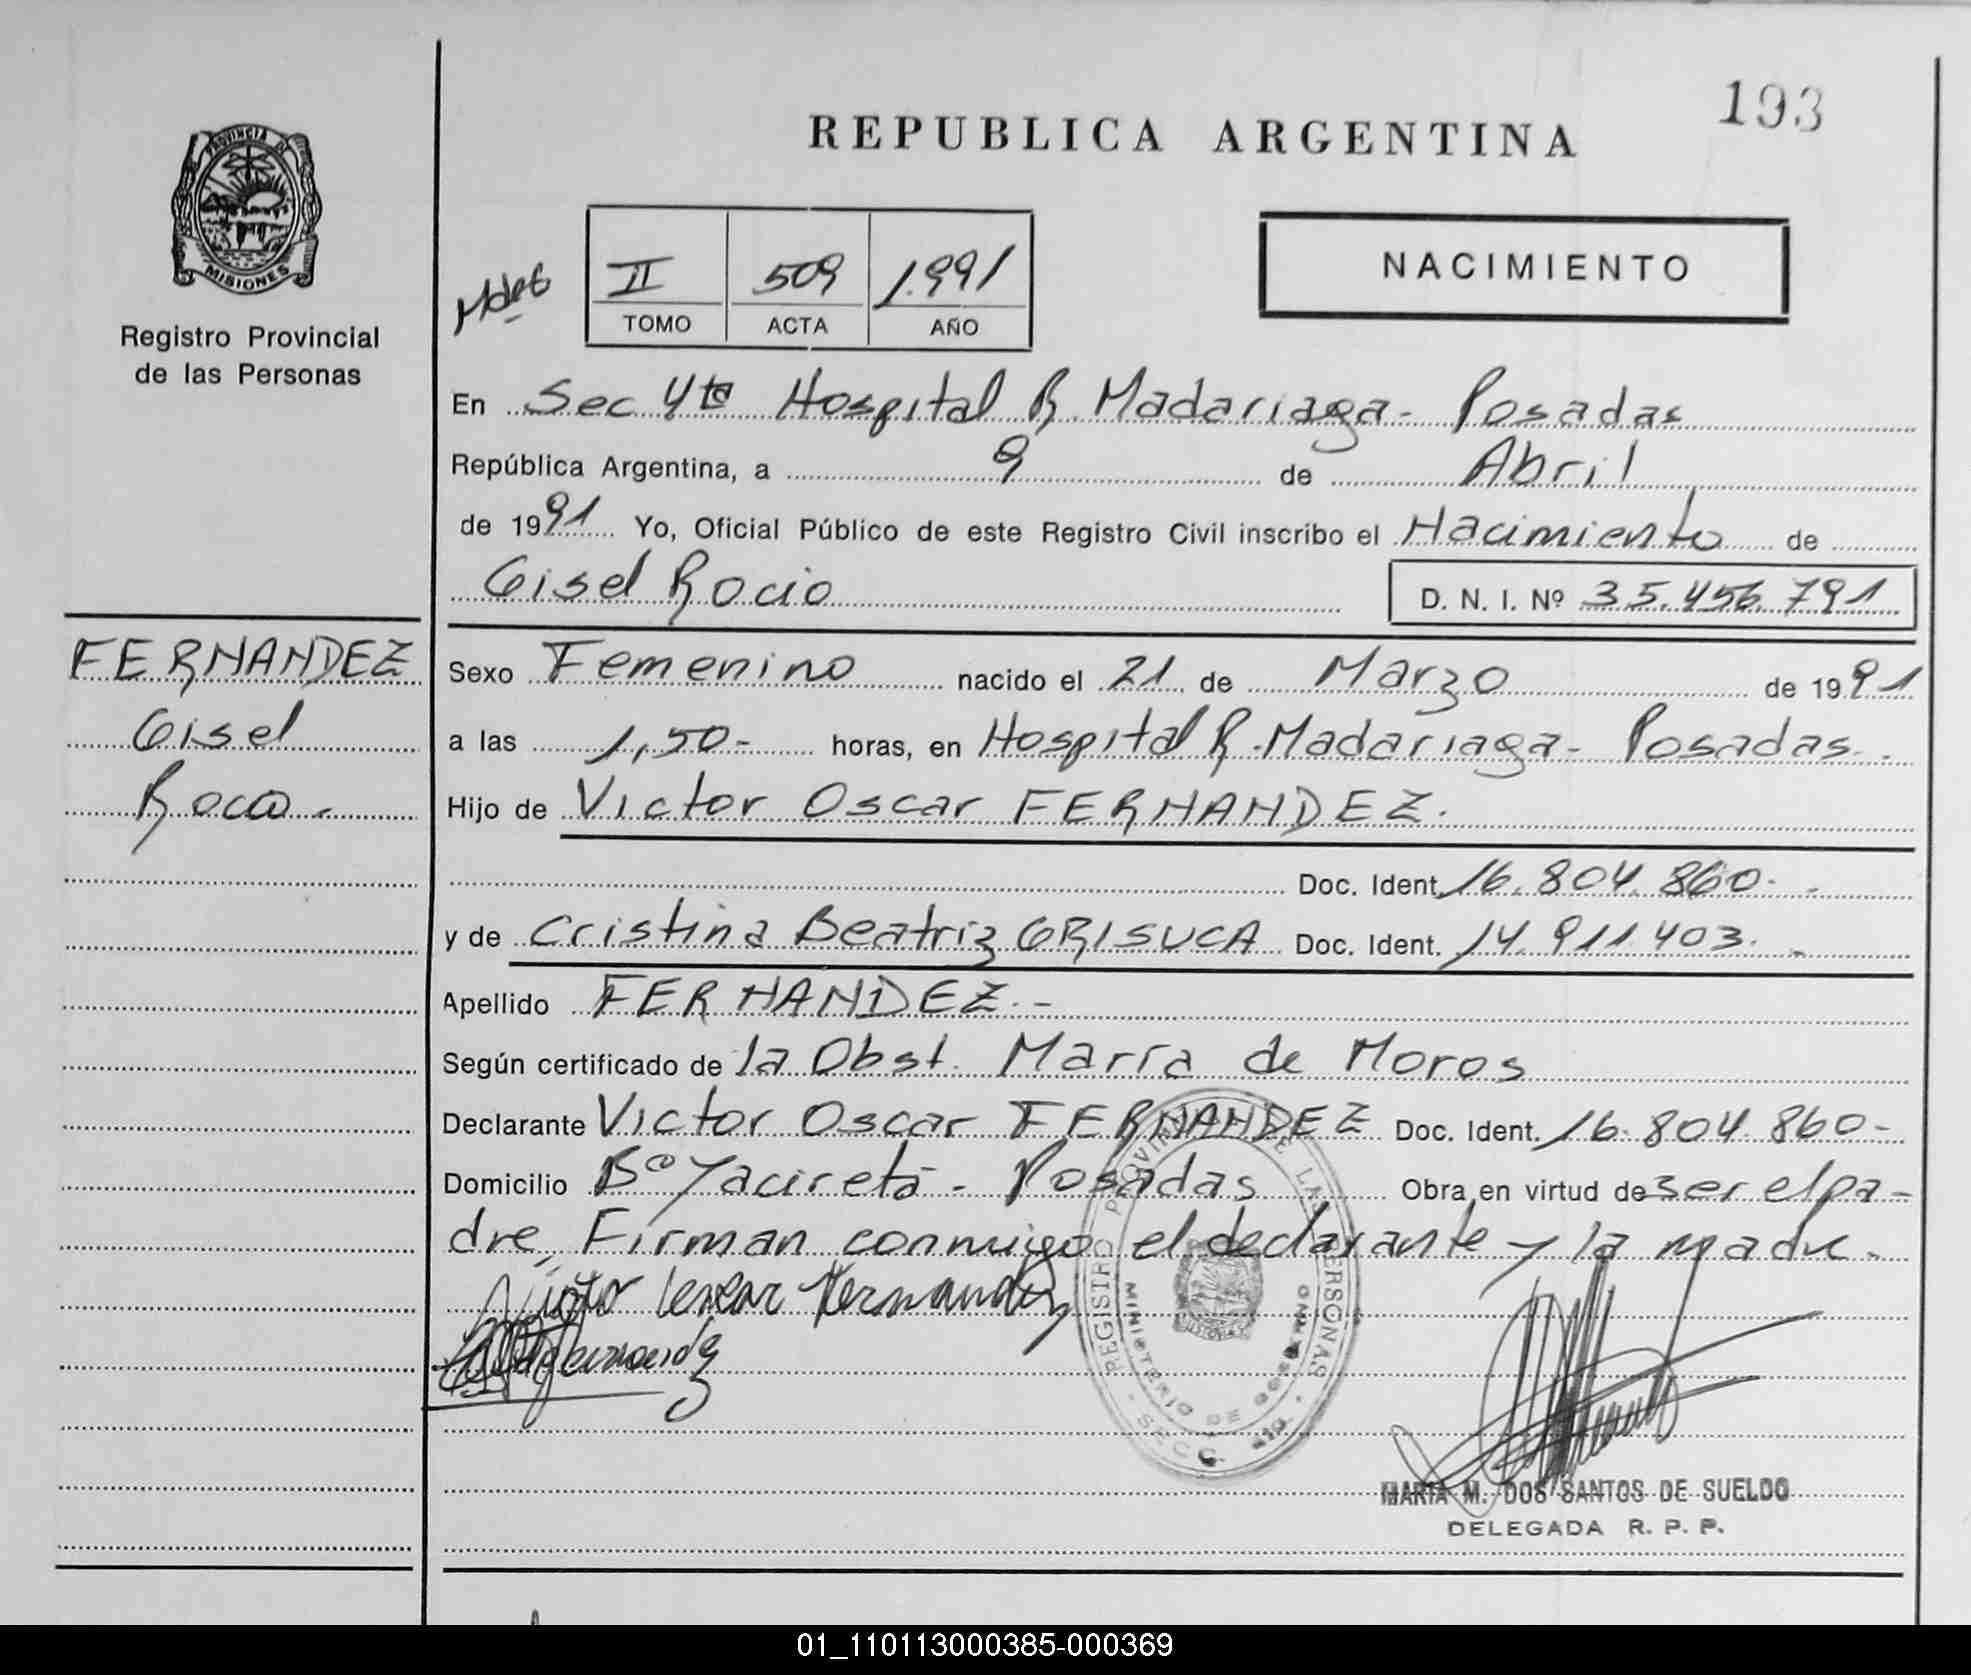 193
REPUBLICA ARGENTINA
PROVINCIA DE
MISIONES
Registro Provincial
de las Personas
II 509 1.991
TOMO ACTA AÑO
NACIMIENTO
En Sec 4ta Hospital R. Madariaga- Posadas
República Argentina, a 9 de Abril
de 1991 Yo, Oficial Público de este Registro Civil inscribo el Nacimiento de
Gisel Rocio
D. N. I. Nº 35.456.791
FERNANDEZ
Gisel
Rocio.
Sexo Femenino nacido el 21 de Marzo de 1991
a las 1,50- horas, en Hospital R. Madariaga- Posadas.
Hijo de Victor Oscar FERNANDEZ.
Doc. Ident. 16.804.860.
y de Cristina Beatriz GRISUCA Doc. Ident. 14.911.403.
Apellido FERNANDEZ.-
Según certificado de la Obst. María de Moros
Declarante Victor Oscar FERNANDEZ Doc. Ident. 16.804.860-
Domicilio Bº Yacireta- Posadas Obra en virtud de ser el pa-
dre, Firman conmigo el declarante y la madre.
REGISTRO PROVINCIAL DE LAS PERSONAS
MINISTERIO DE GOBIERNO
SECC. 4ta.
MARIA M. DOS SANTOS DE SUELDO
DELEGADA R. P. P.
01_110113000385-000369